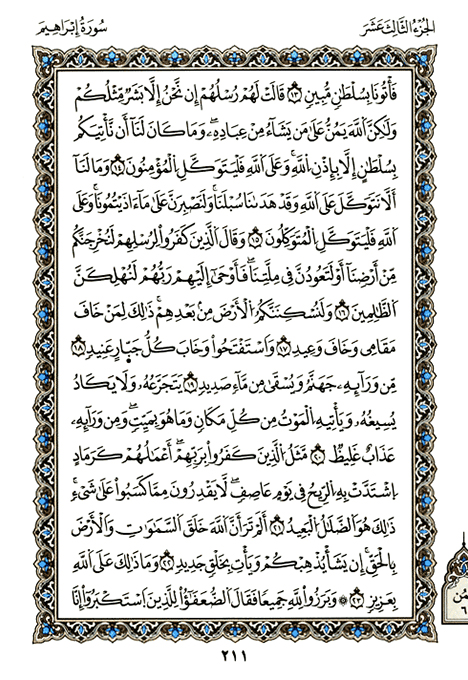 الجُزْءُ الثَّالِثَ عَشَرَ
سُورَةُ إِبْرَاهِيم
فَأْتُونَا بِسُلْطَٰنٍ مُّبِينٍ ١٣ قَالَتْ لَهُمْ رُسُلُهُمْ إِن نَّحْنُ إِلَّا بَشَرٌ مِّثْلُكُمْ
وَلَٰكِنَّ ٱللَّهَ يَمُنُّ عَلَىٰ مَن يَشَآءُ مِنْ عِبَادِهِۦ وَمَا كَانَ لَنَآ أَن نَّأْتِيَكُم
بِسُلْطَٰنٍ إِلَّا بِإِذْنِ ٱللَّهِ وَعَلَى ٱللَّهِ فَلْيَتَوَكَّلِ ٱلْمُؤْمِنُونَ ١٤ وَمَا لَنَآ
أَلَّا نَتَوَكَّلَ عَلَى ٱللَّهِ وَقَدْ هَدَىٰنَا سُبُلَنَا وَلَنَصْبِرَنَّ عَلَىٰ مَآ ءَاذَيْتُمُونَا وَعَلَى
ٱللَّهِ فَلْيَتَوَكَّلِ ٱلْمُتَوَكِّلُونَ ١٥ وَقَالَ ٱلَّذِينَ كَفَرُواْ لِرُسُلِهِمْ لَنُخْرِجَنَّكُم
مِّنْ أَرْضِنَآ أَوْ لَتَعُودُنَّ فِي مِلَّتِنَا فَأَوْحَىٰٓ إِلَيْهِمْ رَبُّهُمْ لَنُهْلِكَنَّ
ٱلظَّٰلِمِينَ ١٦ وَلَنُسْكِنَنَّكُمُ ٱلْأَرْضَ مِنۢ بَعْدِهِمْ ذَٰلِكَ لِمَنْ خَافَ
مَقَامِي وَخَافَ وَعِيدِ ١٧ وَٱسْتَفْتَحُواْ وَخَابَ كُلُّ جَبَّارٍ عَنِيدٍ ١٨
مِّن وَرَآئِهِۦ جَهَنَّمُ وَيُسْقَىٰ مِن مَّآءٍ صَدِيدٍ ١٩ يَتَجَرَّعُهُۥ وَلَا يَكَادُ
يُسِيغُهُۥ وَيَأْتِيهِ ٱلْمَوْتُ مِن كُلِّ مَكَانٍ وَمَا هُوَ بِمَيِّتٍ وَمِن وَرَآئِهِۦ
عَذَابٌ غَلِيظٌ ٢٠ مَّثَلُ ٱلَّذِينَ كَفَرُواْ بِرَبِّهِمْ أَعْمَٰلُهُمْ كَرَمَادٍ
ٱشْتَدَّتْ بِهِ ٱلرِّيحُ فِي يَوْمٍ عَاصِفٍ لَّا يَقْدِرُونَ مِمَّا كَسَبُواْ عَلَىٰ شَيْءٍ
ذَٰلِكَ هُوَ ٱلضَّلَٰلُ ٱلْبَعِيدُ ٢١ أَلَمْ تَرَ أَنَّ ٱللَّهَ خَلَقَ ٱلسَّمَٰوَٰتِ وَٱلْأَرْضَ
بِٱلْحَقِّ إِن يَشَأْ يُذْهِبْكُمْ وَيَأْتِ بِخَلْقٍ جَدِيدٍ ٢٢ وَمَا ذَٰلِكَ عَلَى ٱللَّهِ
بِعَزِيزٍ ٢٣ ۞ وَبَرَزُواْ لِلَّهِ جَمِيعًا فَقَالَ ٱلضُّعَفَٰٓؤُاْ لِلَّذِينَ ٱسْتَكْبَرُوٓاْ إِنَّا
٢١١